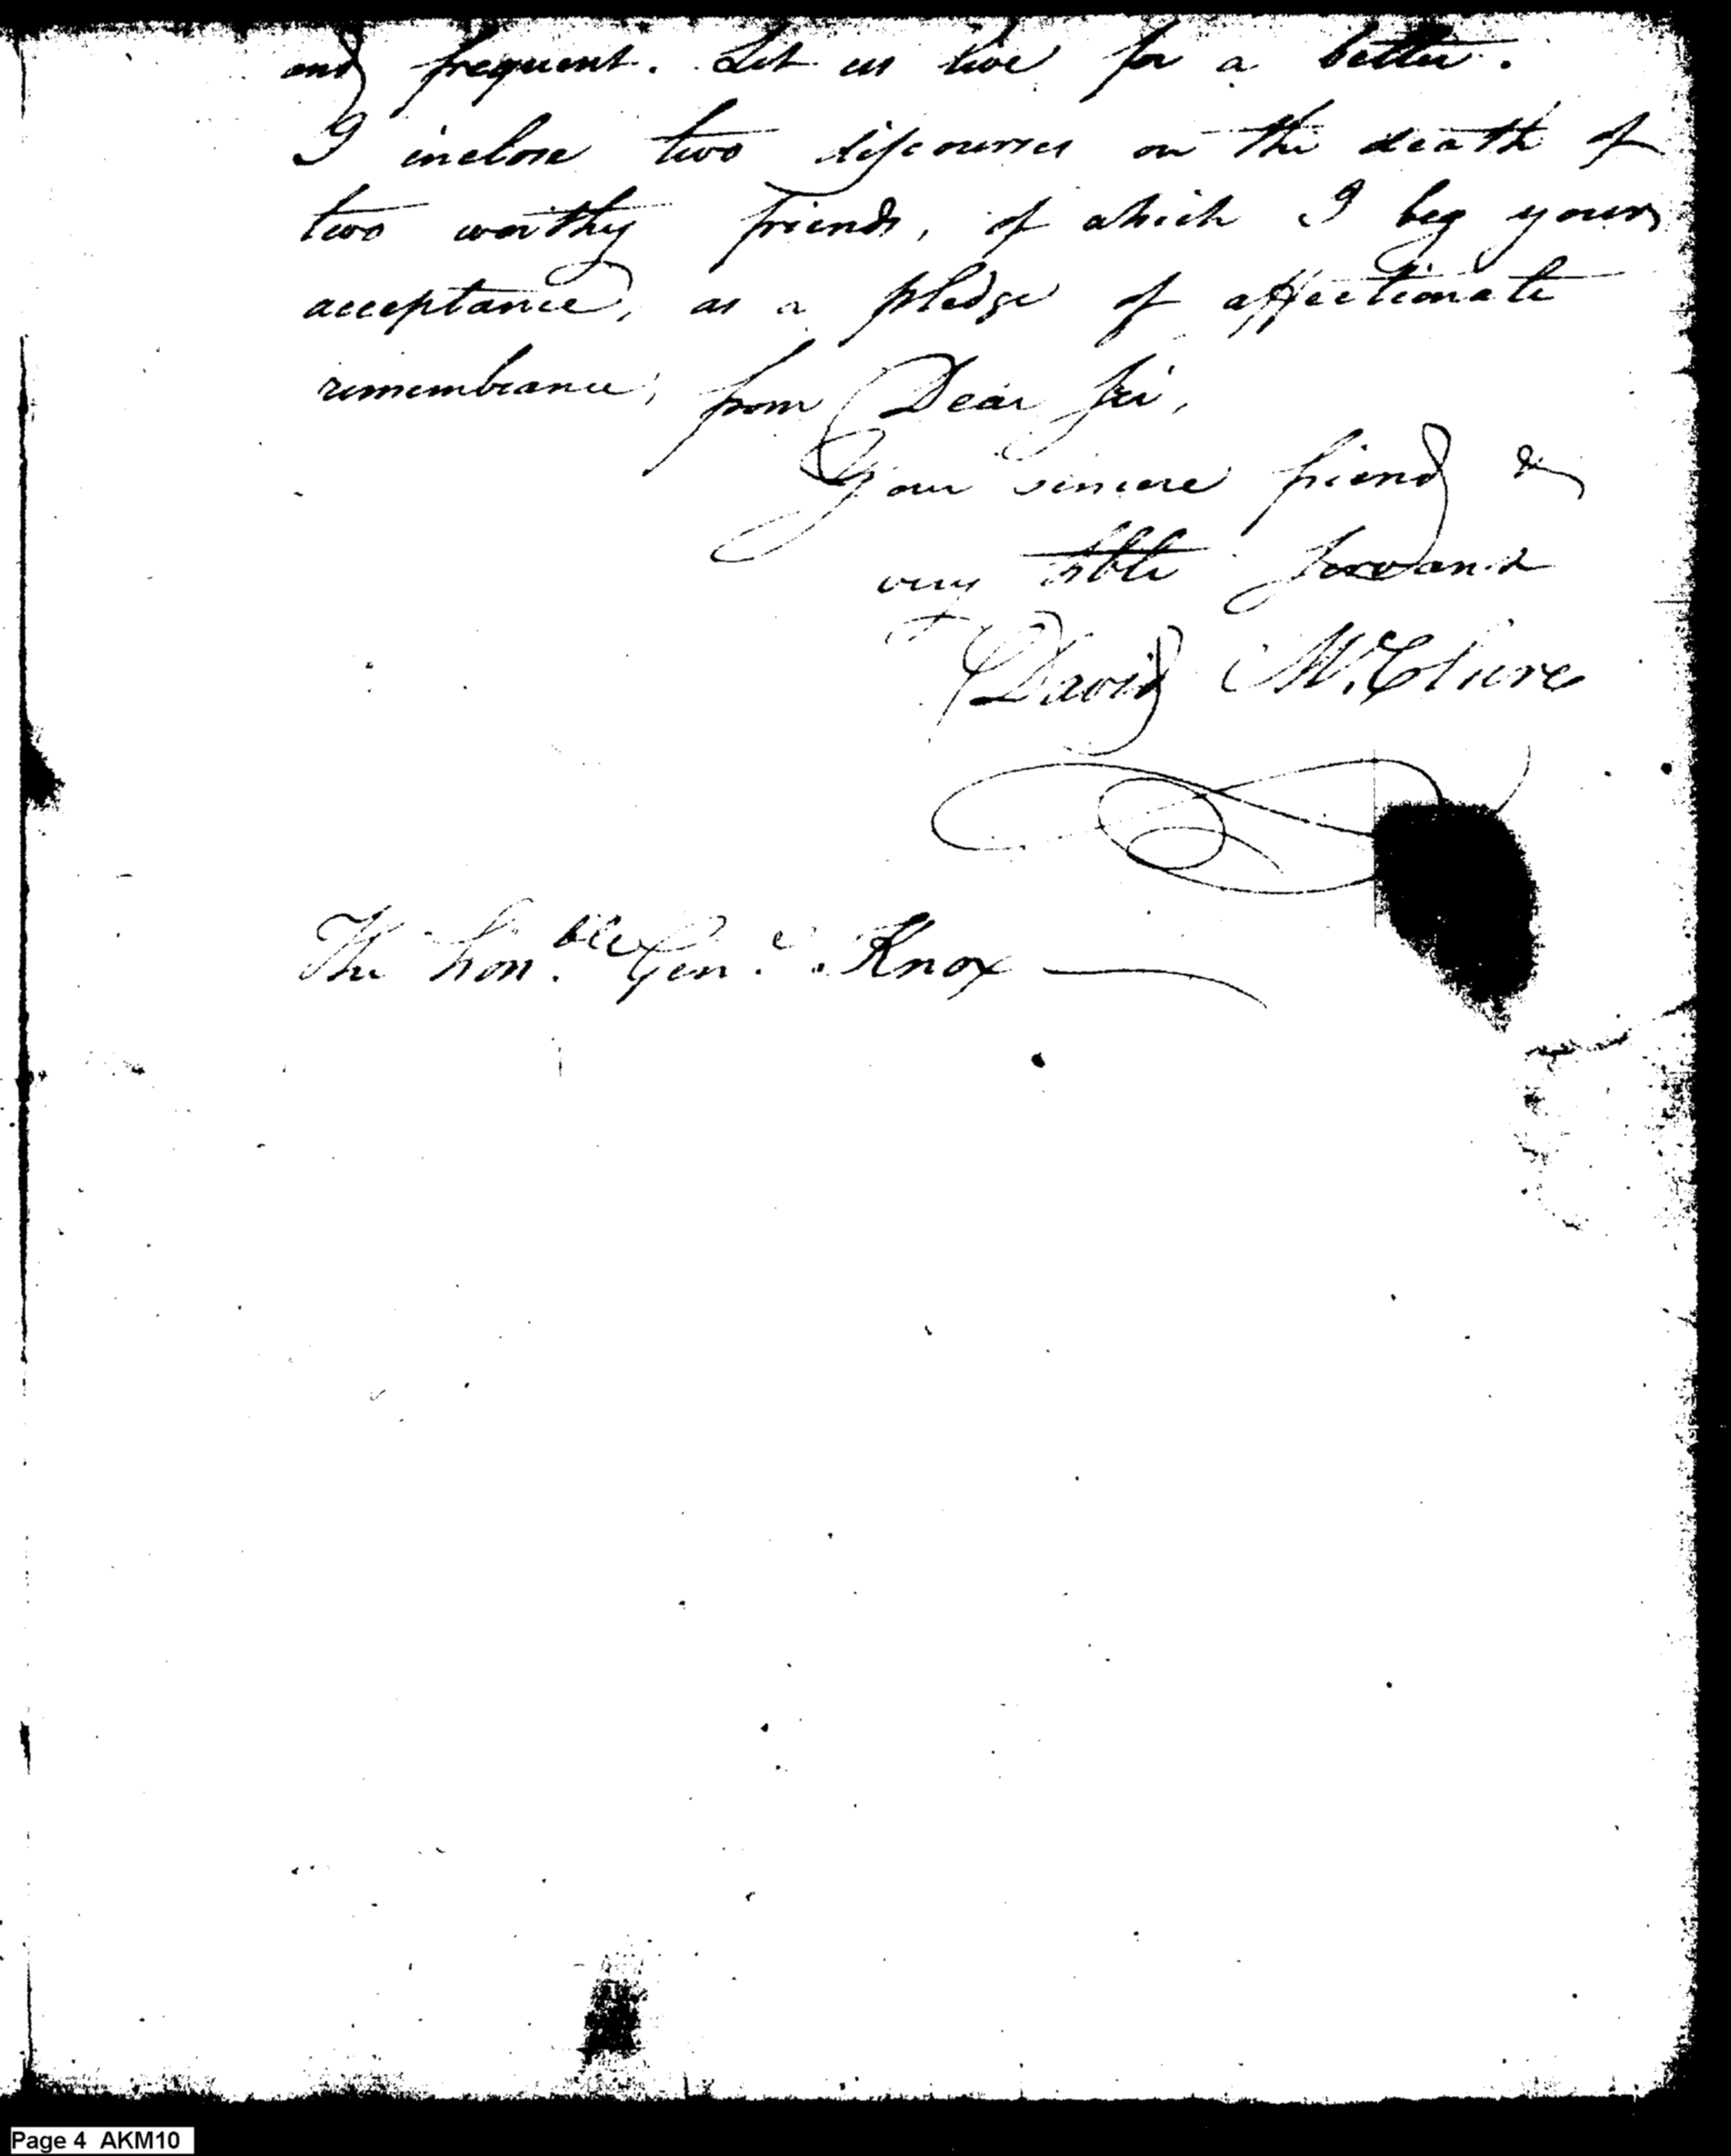 and frequent. Let us live for a better.
I inclose two discourses on the death of
two worthy friends, of which I beg your
acceptance, as a pledge of affectionate
remembrance, from Dear Sir,
Your sincere friend &
very obt Servant
David McClure
The hon.ble Genl. Knox
Page 4 AKM10